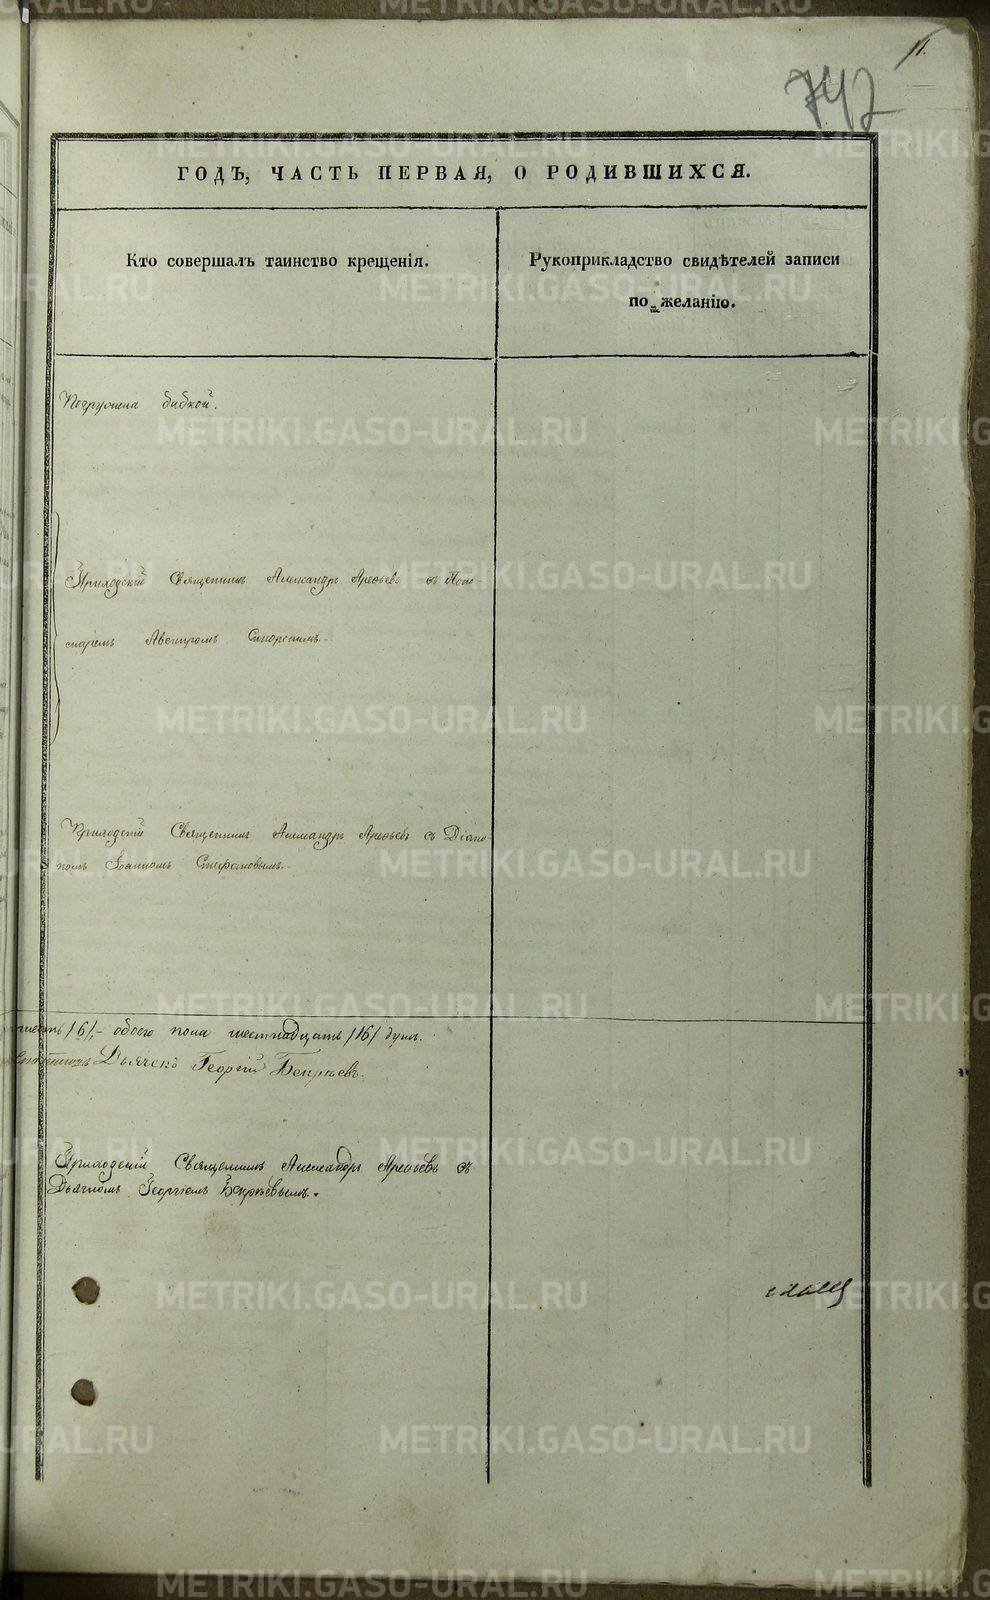 11.
742
ГОДЪ, ЧАСТЬ ПЕРВАЯ, О РОДИВШИХСЯ.
Кто совершалъ таинство крещенія.
Рукоприкладство свидѣтелей записи
по желанію.
Погружена бабкой.
Приходскій Священникъ Александръ Арефьевъ съ Поно-
маремъ Авениромъ
Приходскій Священникъ Александръ Арефьевъ съ Діако-
номъ Іоанномъ Стефановымъ.
шесть /6/, обоего пола шестнадцать /16/ душъ.
Дьячекъ Георгій
Приходскій Священникъ Александръ Арефьевъ съ
Дьячкомъ Георгіемъ
METRIKI.GASO-URAL.RU